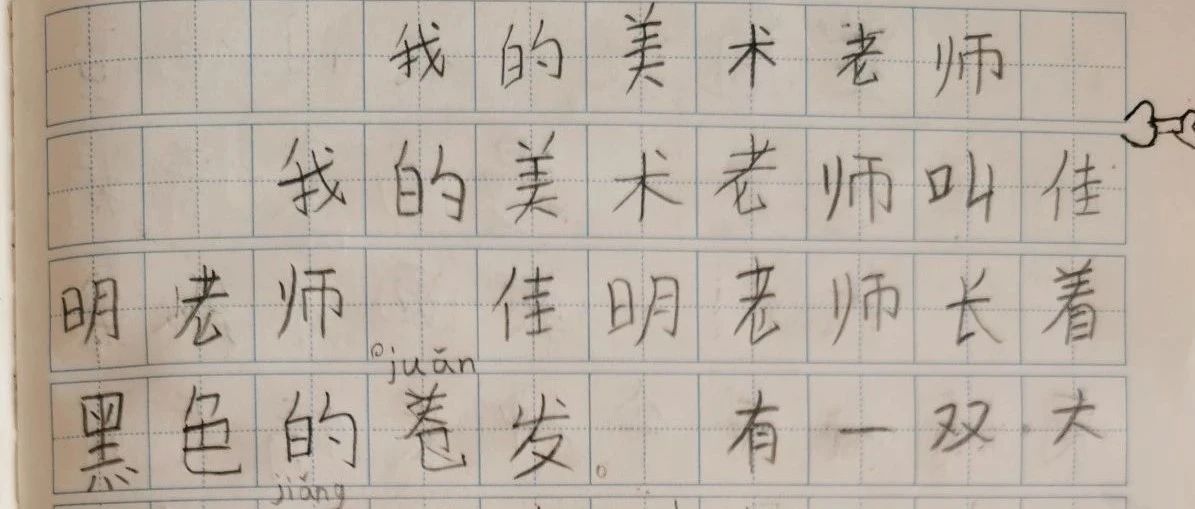 我的美术老师
我的美术老师叫佳
明老师。佳明老师长着
juǎn
黑色的卷发。有一双大
jiǎng